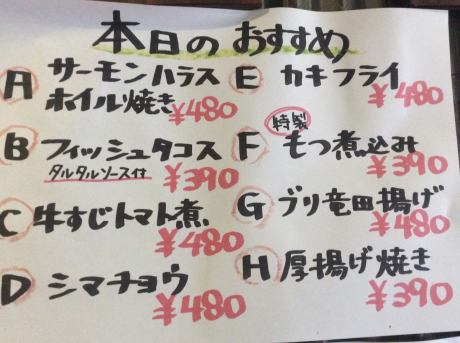 本日のおすすめ
A サーモンハラス
ホイル焼き
¥480
B フィッシュタコス
タルタルソース付
¥390
C 牛すじトマト煮
¥480
D シマチョウ
¥480
E カキフライ
¥480
特製
F もつ煮込み
¥390
G ブリ竜田揚げ
¥480
H 厚揚げ焼き
¥390